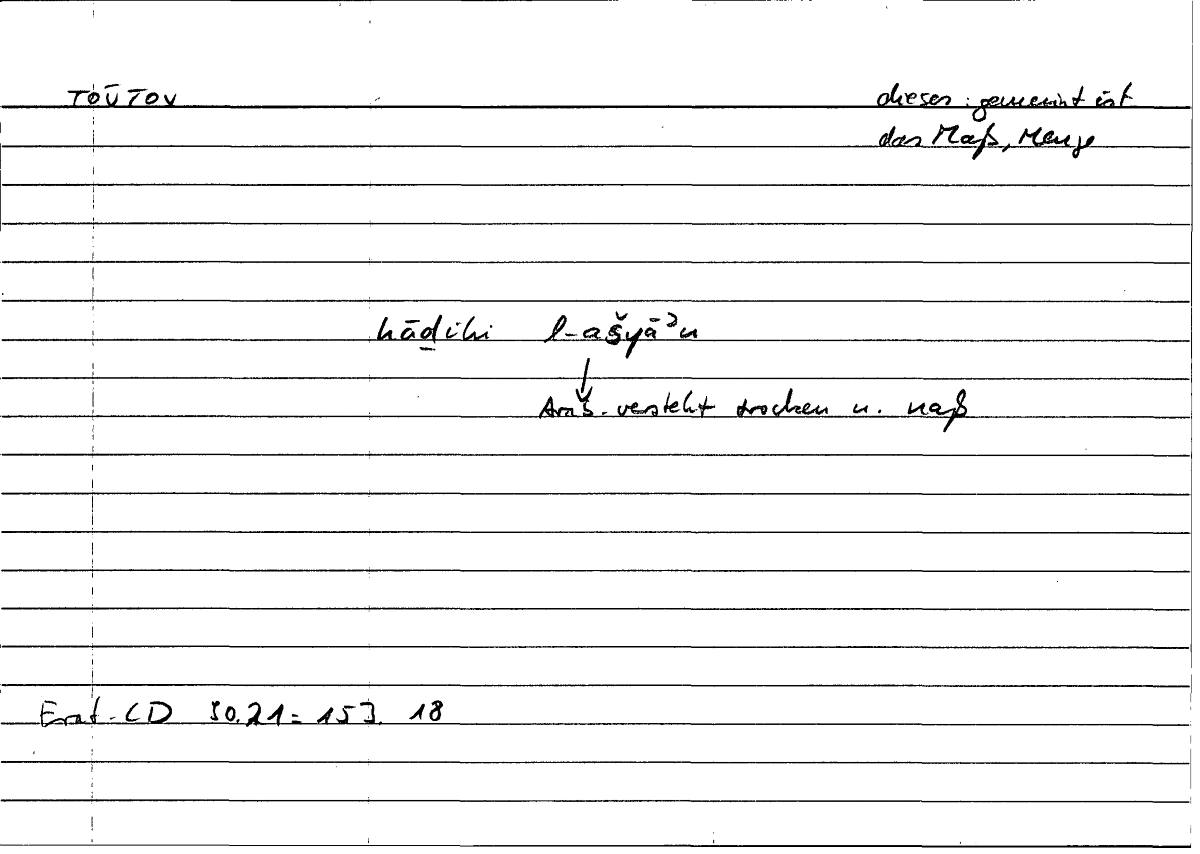 τοῦτον dieser: gemeint ist
das Maß, Menge
hāḏihi l-ašyāʾu
↓
Arab. versteht trocken u. naß
Erat-CD 30.21 = 153. 18